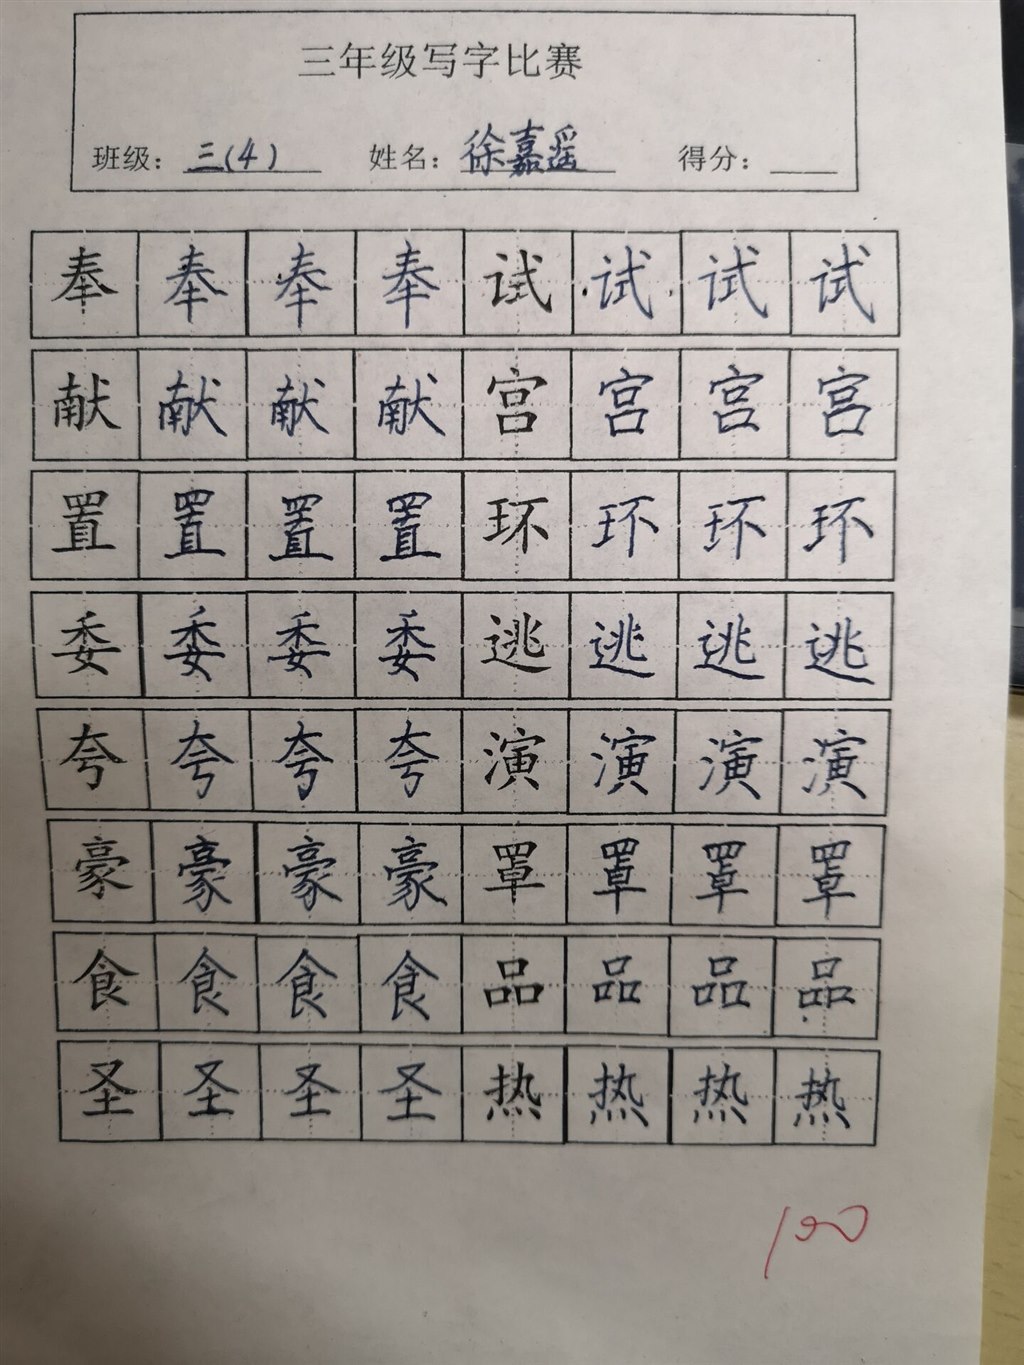 三年级写字比赛
班级：三(4) 姓名：徐嘉遥 得分：
奉奉奉奉试试试试
献献献献宫宫宫宫
置置置置环环环环
委委委委逃逃逃逃
夸夸夸夸演演演演
豪豪豪豪罩罩罩罩
食食食食品品品品
圣圣圣圣热热热热
100